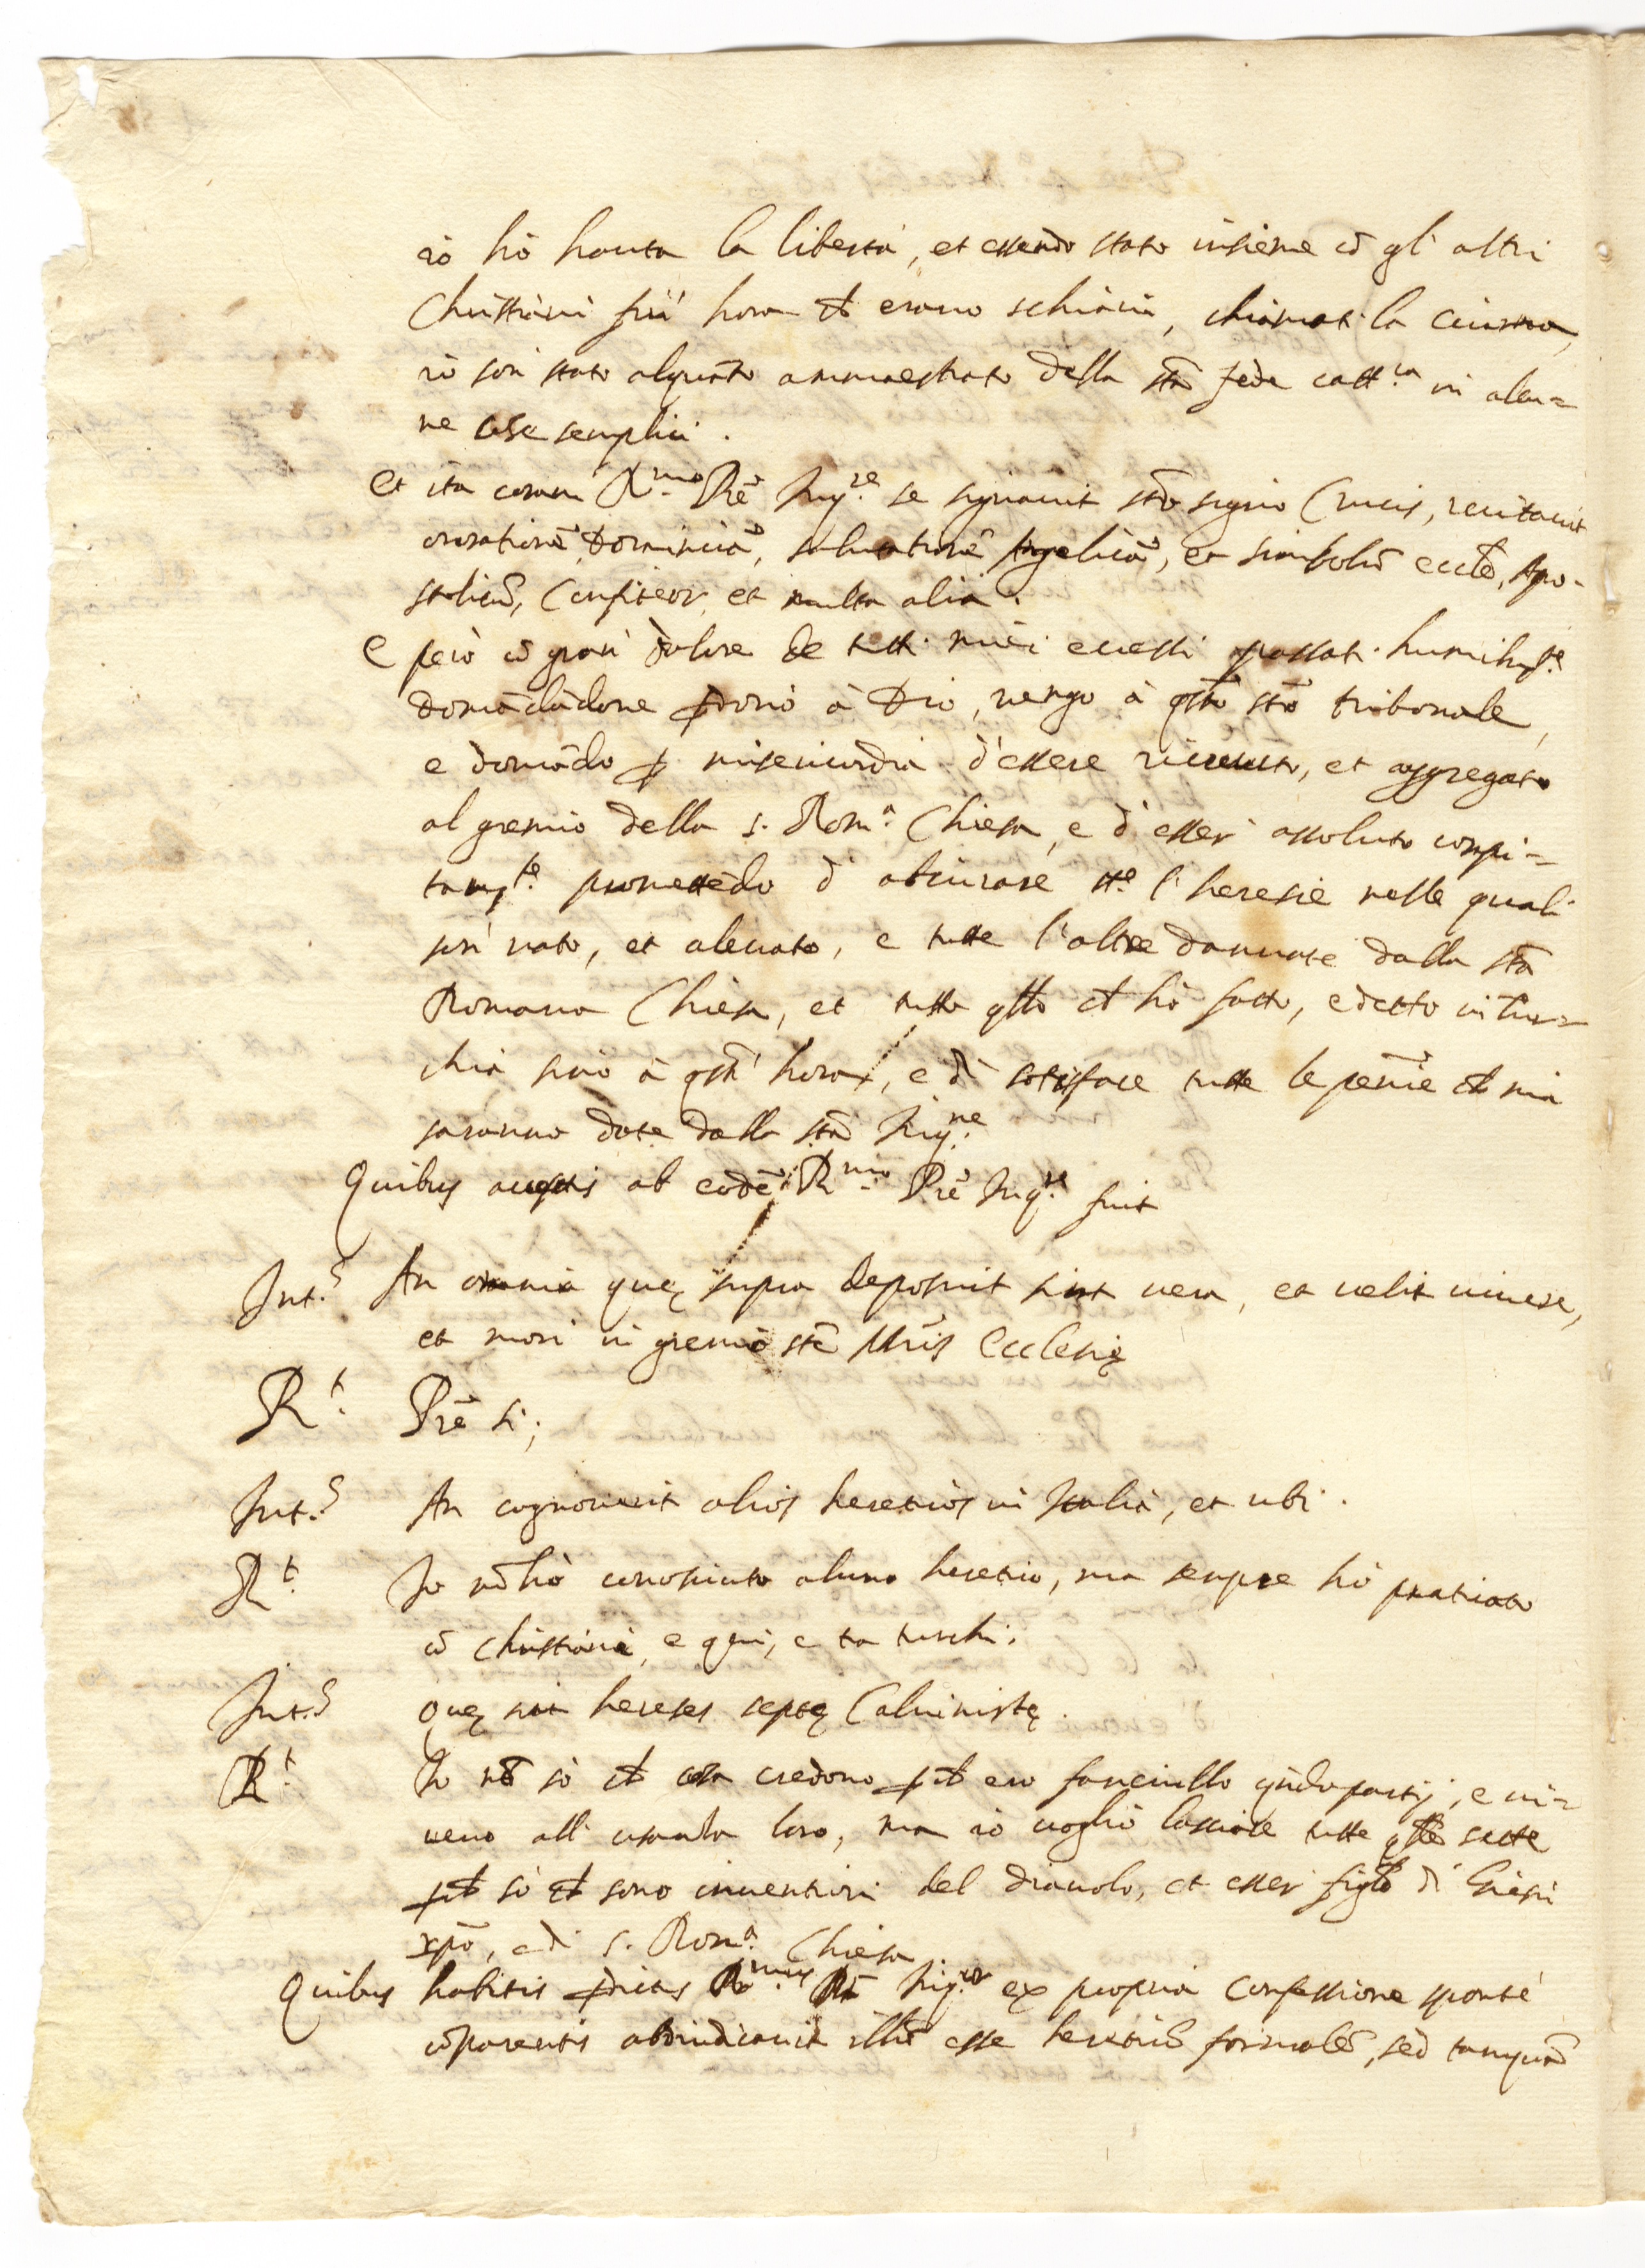 iò hò hauta la libertà, et essendo stato insieme cō gl' altri
Christiani fin' hora ch erano schiaui, chiamati la ciurma,
iò son stato alquāto ammaestrato della stā fede catt.ca in alcu=
ne cose semplici.
Et ita coram R.mo Prē Inq.re se signauit stō signo Crucis, recitauit
orationē Dominicā, salutationē Angelicā, et simbolū eccłē, Apo-
stolicū, Confiteor, et multa alia.
E però cō gran dolore de tutti miei eccessi passati humilmt.e
domādādone pdono à Dio, uengo à qsto stō tribonale,
e domādo p misericordia d'essere riceuuto, et aggregato
al gremio della s. Rom.a Chiesa, e d'esser assoluto conpi=
tamt.e promettēdo d' abiurare tt.e l'heresie nelle quali
son nato, et aleuato, e tutte l'altre dannate dalla stā
Romana Chiesa, et tutto qllo ch hò fatto, e detto in Tur=
chia sino à qsta hora, e di satisfare tutte le penē ch mi
saranno date dalla stā Inq.ne
Quibus acceptis ab eodē R.mo Prē Inq.re fuit
Int.s An omnia quę supra deposuit sint uera, et uelit uiuere,
et mori in gremio stē Mrīs Ecclesię
R.t Prē si;
Int.s An cognouerit alios hereticos in Italia, et ubi.
R.t Io nō hò conosciuto alcuno heretico, ma sempre hò praticato
cō christiani, e qui, e tra turchi.
Int.s Quę sint hereses septę Caluinistę.
R.t Io nō sò ch cosa credono pch ero fanciullo quādo partij, e ui=
ueuo all' usanza loro, ma iò uoglio lasciare tutte qste sette
pch sò ch sono inuentioni del diauolo, et esser figlo di Giesù
xpō, e di s. Rom.a Chiesa
Quibus habitis pdictus R.mus Pr Inq.or ex propria confessione spontè
cōparentis abiudicauit illū esse hereticū formalē, sed tamquā